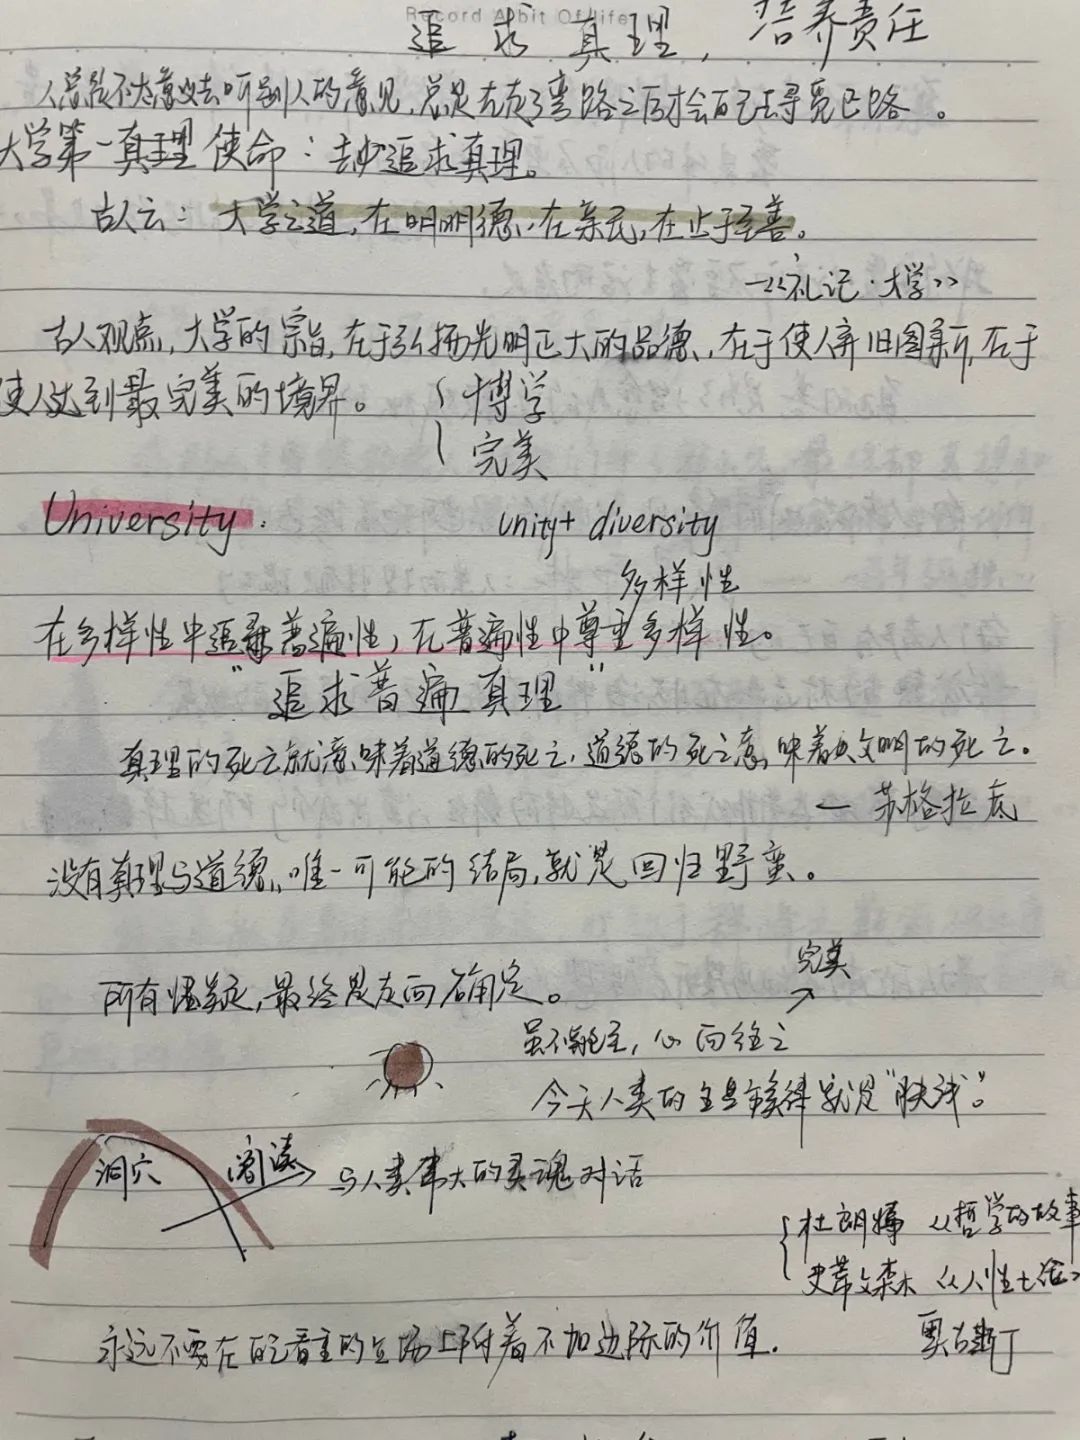 Record A bit Of life
追求真理，培养责任
人总是不太愿意去听别人的意见，总是在走了弯路之后才会自己去寻觅已路。
大学第一真理使命：去追求真理。
古人云：大学之道，在明明德，在亲民，在止于至善。
—《礼记·大学》
古人观点，大学的宗旨，在于弘扬光明正大的品德，在于使人弃旧图新，在于
使人达到最完美的境界。{博学
完美
University: unity+ diversity
多样性
在多样性中追寻普遍性，在普遍性中尊重多样性。
"追求普遍真理"
真理的死亡就意味着道德的死亡，道德的死亡意味着文明的死亡。
— 苏格拉底
没有真理与道德，唯一可能的结局，就是回归野蛮。
完美
所有怀疑，最终是走向确定。
虽不能至，心向往之
今天人类的主旋律就是"肤浅"。
洞穴 阅读 与人类伟大的灵魂对话
{杜朗特《哲学的故事
史蒂文森《人性七论》
永远不要在自己看重的立场上附着不加边际的价值.
奥古斯丁